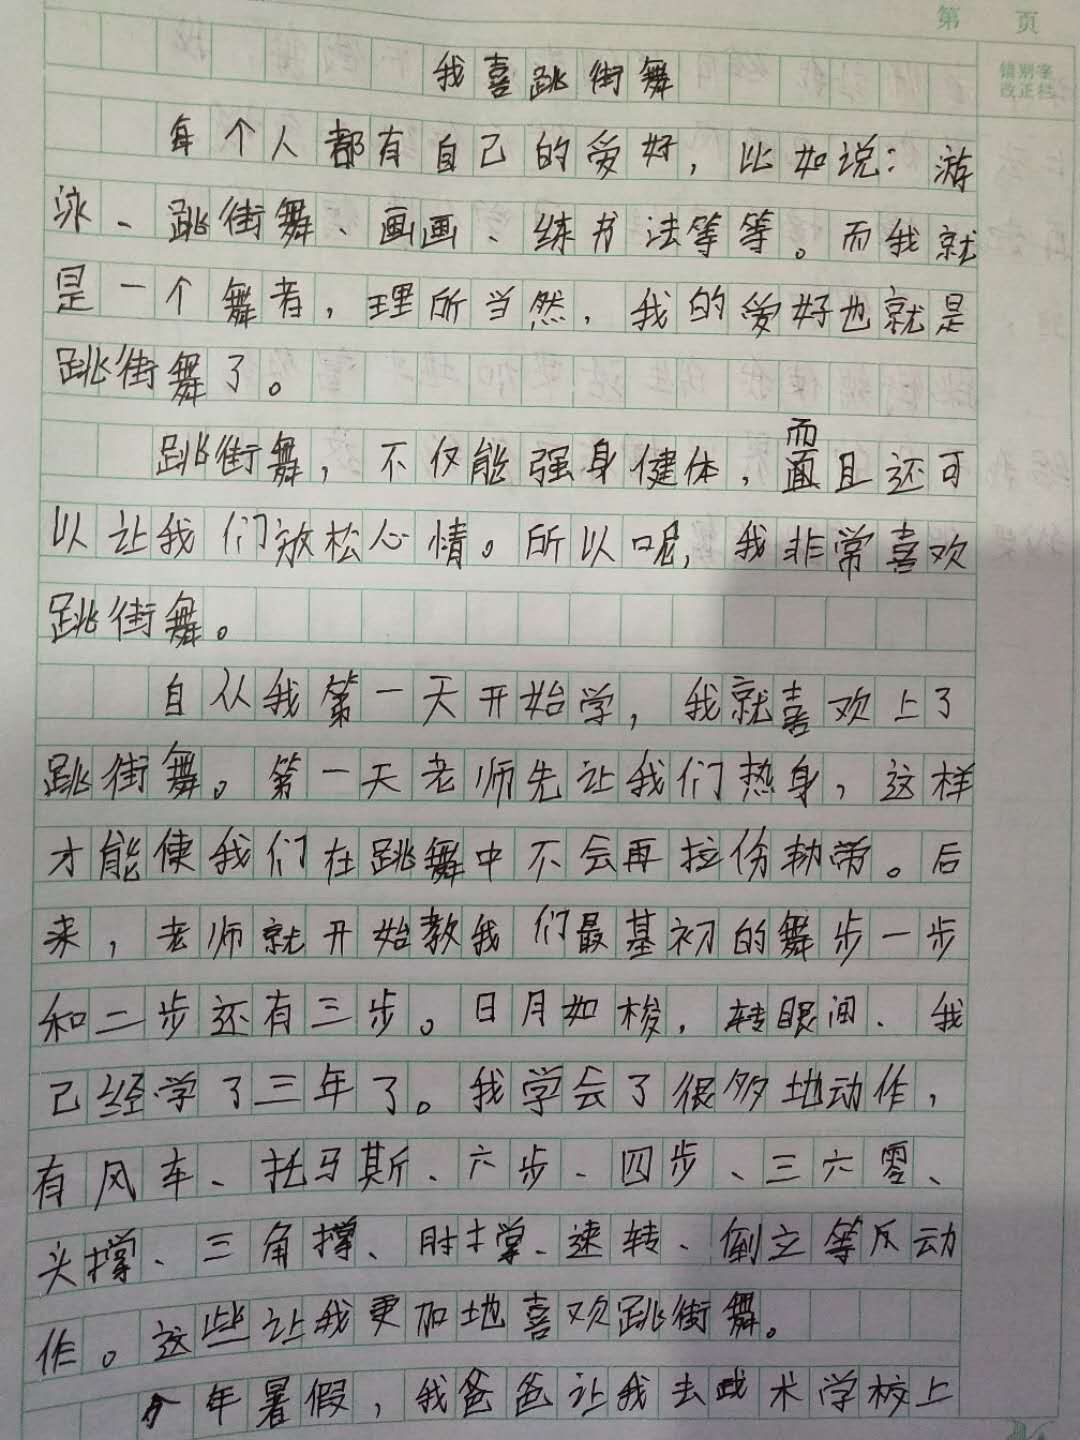 第 页
错别字
改正栏
我喜跳街舞
每个人都有自己的爱好，比如说：游
泳、跳街舞、画画、练书法等等。而我就
是一个舞者，理所当然，我的爱好也就是
跳街舞了。
而
跳街舞，不仅能强身健体，面且还可
以让我们放松心情。所以呢，我非常喜欢
跳街舞。
自从我第一天开始学，我就喜欢上了
跳街舞。第一天老师先让我们热身，这样
才能使我们在跳舞中不会再拉伤韧带。后
来，老师就开始教我们最基初的舞步一步
和二步还有三步。日月如梭，转眼间、我
己经学了三年了。我学会了很多地动作，
有风车、托马斯、六步、四步、三六零、
头撑、三角撑、肘撑、速转、倒立等反动
作。这些让我更加地喜欢跳街舞。
今年暑假，我爸爸让我去武术学校上